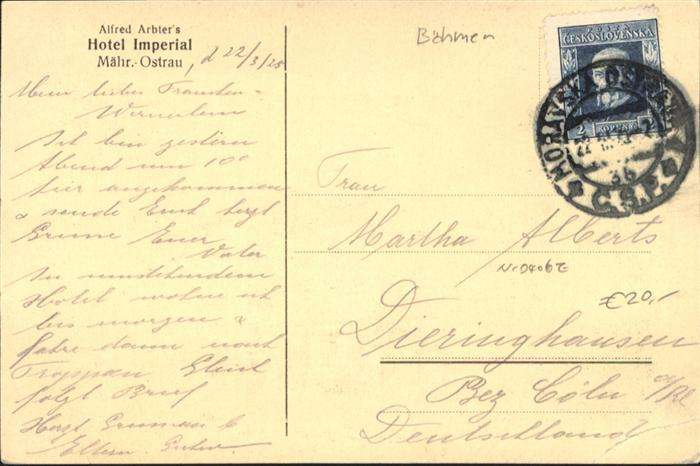 Alfred Arbter's
Hotel Imperial
Mähr.-Ostrau, d 22/3/25
Mein liebes
Ich bin gestern
Abend um 10°
hier angekommen
& sende Euch herzl
Grüsse Euer
Vater
In umstehendem
Hotel wohne ich
bis morgen &
fahre dann nach
Troppau
folgt Brief
Herzl
Eltern
Böhmen
POŠTA
ČESKOSLOVENSKÁ
2 KORUNY
MORAVSKÁ OSTRAVA
3b
Č.S.P.
Frau
Martha Alberts
€20,-
Dieringhausen
Bez Cöln a/Rh
Deutschland